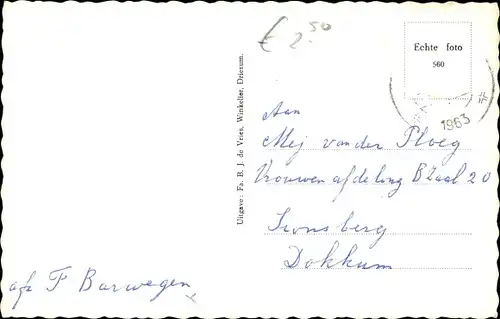 € 2.50
Echte foto
560
1963
Uitgave: Fa. B. J. de Vries, Winkelier, Driezum.
Aan
Mej van der Ploeg
Vrouwen afdeling B Zaal 20
Sionsberg
Dokkum
afz F Barwegen